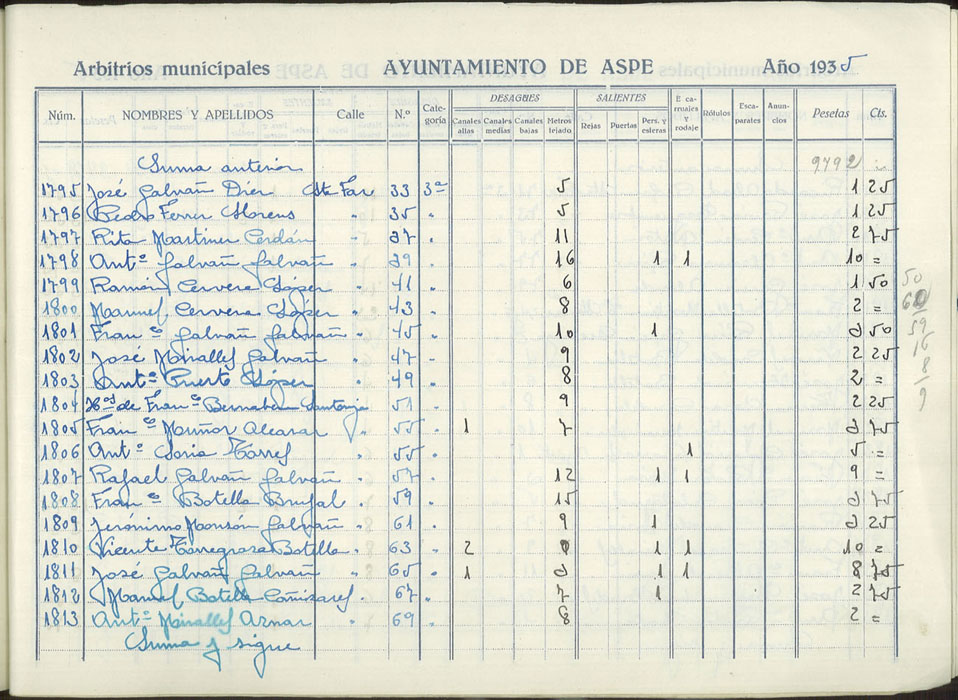 Arbitrios municipales AYUNTAMIENTO DE ASPE Año 1935
Núm. NOMBRES Y APELLIDOS Calle N.º Categoría DESAGUES Canales altas Canales medias Canales bajas Metros tejado SALIENTES Rejas Puertas Pers. y esteras E. carruajes y rodaje Rótulos Escaparates Anuncios Pesetas Cts.
Suma anterior 9792
1795 José Galvañ Dier Ste Far 33 3ª 5 1 25
1796 Pedro Ferrer Llorens " 35 " 5 1 25
1797 Rita Martiner Cerdán " 37 " 11 2 75
1798 Antº Galvañ Galvañ " 39 " 16 1 1 10 =
1799 Ramón Cervera López " 41 " 6 1 50
1800 Manuel Cervera López " 43 " 8 2 =
1801 Franco Galvañ Galvañ " 45 " 10 1 3 50
1802 José Mirallef Galvañ " 47 " 9 2 25
1803 Antº Puerto López " 49 " 8 2 =
1804 Hos de Franco Bernabeu Santonja 51 " 9 2 25
1805 Franco Muñor Alcarar " 55 " 1 7 3 75
1806 Antº Soria Torref " 55 " 1 5 =
1807 Rafael Galvañ Galvañ " 57 " 12 1 1 9 =
1808 Franco Botella Brufal " 59 " 15 3 75
1809 Jerónimo Monsón Galvañ " 61 " 9 1 3 25
1810 Vicente Torregrosa Botella " 63 " 2 1 1 10 =
1811 José Galvañ Galvañ " 65 " 1 3 1 1 8 75
1812 Manuel Botella Cañizaref " 67 " 7 1 2 75
1813 Antº Mirallef Aznar " 69 8 2 =
Suma y sigue
50
59
16
8
9